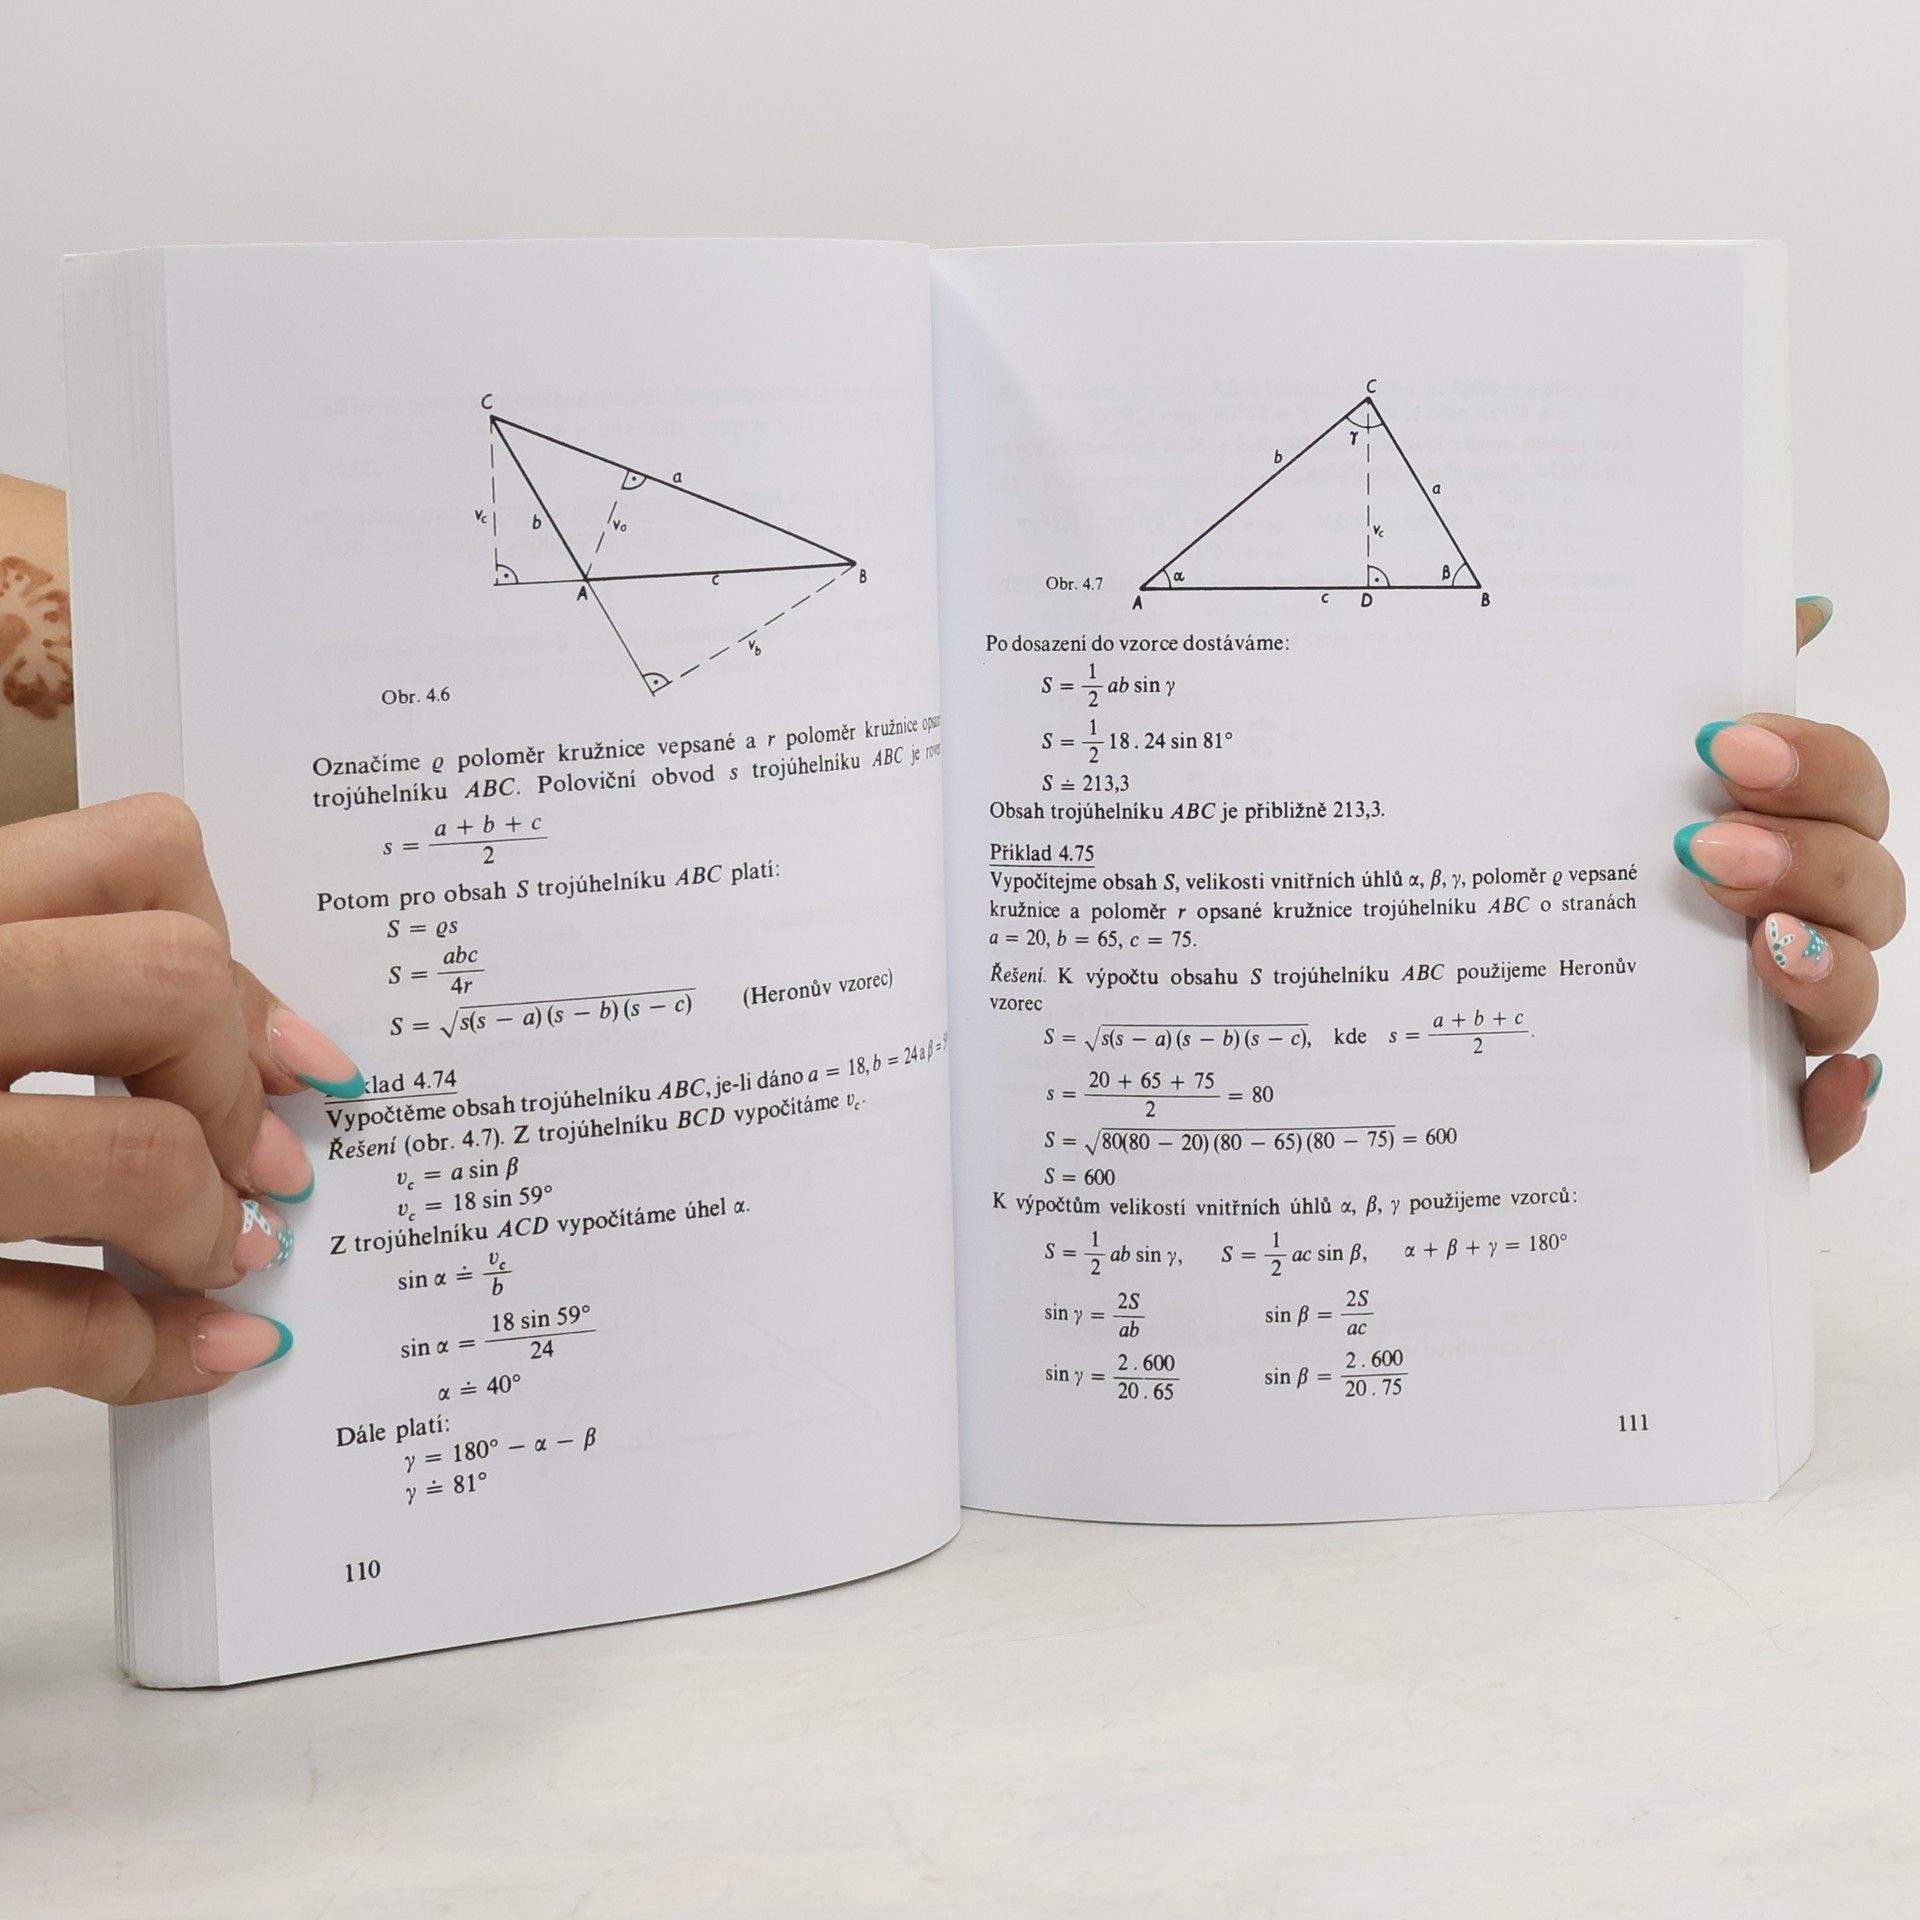 C
a
v_c
b
v_a
c
A
B
v_b
Obr. 4.6
Označíme ϱ poloměr kružnice vepsané a r poloměr kružnice
trojúhelníku ABC. Poloviční obvod s trojúhelníku ABC je
s = (a + b + c)/2
Potom pro obsah S trojúhelníku ABC platí:
S = ϱs
S = abc/4r
S = √(s(s − a)(s − b)(s − c)) (Heronův vzorec)
klad 4.74
Vypočtěme obsah trojúhelníku ABC, je-li dáno a = 18, b = 24 a β =
Řešení (obr. 4.7). Z trojúhelníku BCD vypočítáme v_c.
v_c = a sin β
v_c = 18 sin 59°
Z trojúhelníku ACD vypočítáme úhel α.
sin α ≐ v_c/b
sin α = (18 sin 59°)/24
α ≐ 40°
Dále platí:
γ = 180° − α − β
γ ≐ 81°
110
C
γ
b
a
v_c
Obr. 4.7
α
β
A
c
D
B
Po dosazení do vzorce dostáváme:
S = 1/2 ab sin γ
S = 1/2 18 . 24 sin 81°
S ≐ 213,3
Obsah trojúhelníku ABC je přibližně 213,3.
Příklad 4.75
Vypočítejme obsah S, velikosti vnitřních úhlů α, β, γ, poloměr ϱ vepsané
kružnice a poloměr r opsané kružnice trojúhelníku ABC o stranách
a = 20, b = 65, c = 75.
Řešení. K výpočtu obsahu S trojúhelníku ABC použijeme Heronův
vzorec
S = √(s(s − a)(s − b)(s − c)), kde s = (a + b + c)/2.
s = (20 + 65 + 75)/2 = 80
S = √(80(80 − 20)(80 − 65)(80 − 75)) = 600
S = 600
K výpočtům velikostí vnitřních úhlů α, β, γ použijeme vzorců:
S = 1/2 ab sin γ, S = 1/2 ac sin β, α + β + γ = 180°
sin γ = 2S/ab sin β = 2S/ac
sin γ = (2 . 600)/(20 . 65) sin β = (2 . 600)/(20 . 75)
111